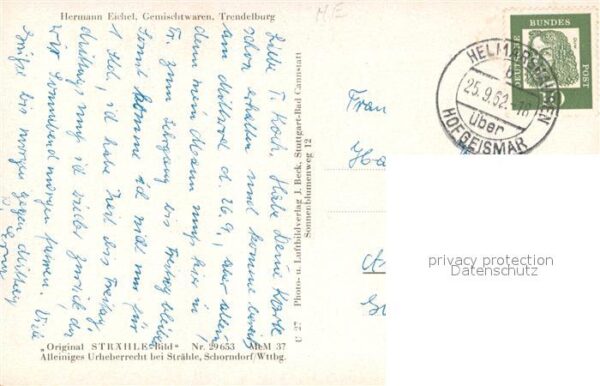 Hermann Eichel, Gemischtwaren, Trendelburg
M.E
Liebe T. Koch. Habe Deine Karte
schon erhalten und komme bereits
am Mittwoch d. 26.9., aber allein
denn mein Mann muß hier in
Tr. zum Lehrgang bis Freitag bleiben
Somit komme ich nur für
1 Tag, ich habe Zeit bis Freitag
Mittag, muß ich wieder zurück, da
wir Sonnabend morgen fahren. Viele
Grüße bis morgen gegen Mittag
U 27 Photo- u. Luftbildverlag J. Beck, Stuttgart-Bad Cannstatt
Sonnenblumenweg 12
„Original STRÄHLE-Bild" Nr. 29653 MeM 37
Alleiniges Urheberrecht bei Strähle, Schorndorf/Wttbg.
DEUTSCHE BUNDES POST
HELMARSHAUSEN
25.9.62
über
HOFGEISMAR
Frau
privacy protection
Datenschutz